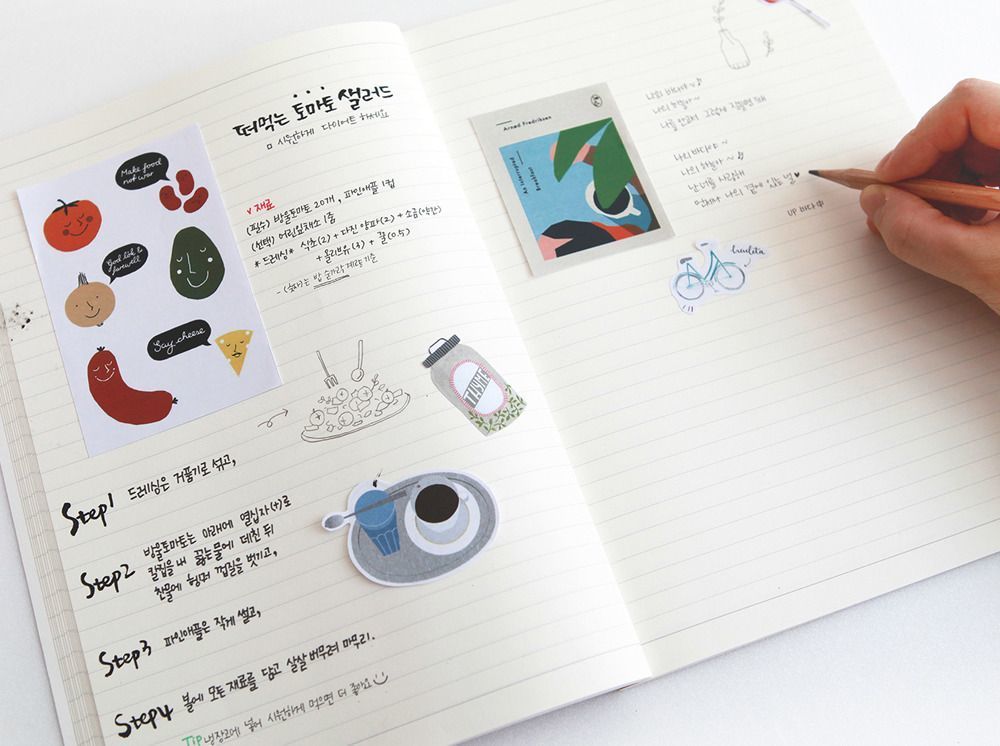 떠먹는 토마토 샐러드
시원하게 다이어트 하세요
Make food
not war
Good luck &
farewell
Say cheese
v 재료
(필수) 방울토마토 20개, 파인애플 1컵
(선택) 어린잎채소 1줌
* 드레싱 * 식초(2) + 다진 양파(2) + 소금(약간)
+ 올리브유(3) + 꿀(0.5)
- (숫자)는 밥 숟가락 계량 기준
TASHE
Step1 드레싱은 거품기로 섞고,
Step2 방울토마토는 아래에 열십자(+)로
칼집을 내 끓는물에 데친 뒤
찬물에 헹궈 껍질을 벗기고,
Step3 파인애플은 작게 썰고,
Step4 볼에 모든 재료를 담고 살살 버무려 마무리.
TIP 냉장고에 넣어 시원하게 먹으면 더 좋아요
Arned Fredriksen
An interrupted
Breakfast
나의 바다야~
나의 하늘아~
나를 안고서 그렇게 잠들면 돼
나의 바다야~
나의 하늘아~
난 너를 사랑해
언제나 나의 곁에 있는 널 ♥
UP 바다中